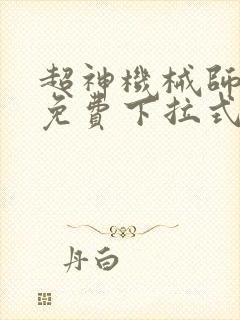 超神機械師
免費下拉式
丹白